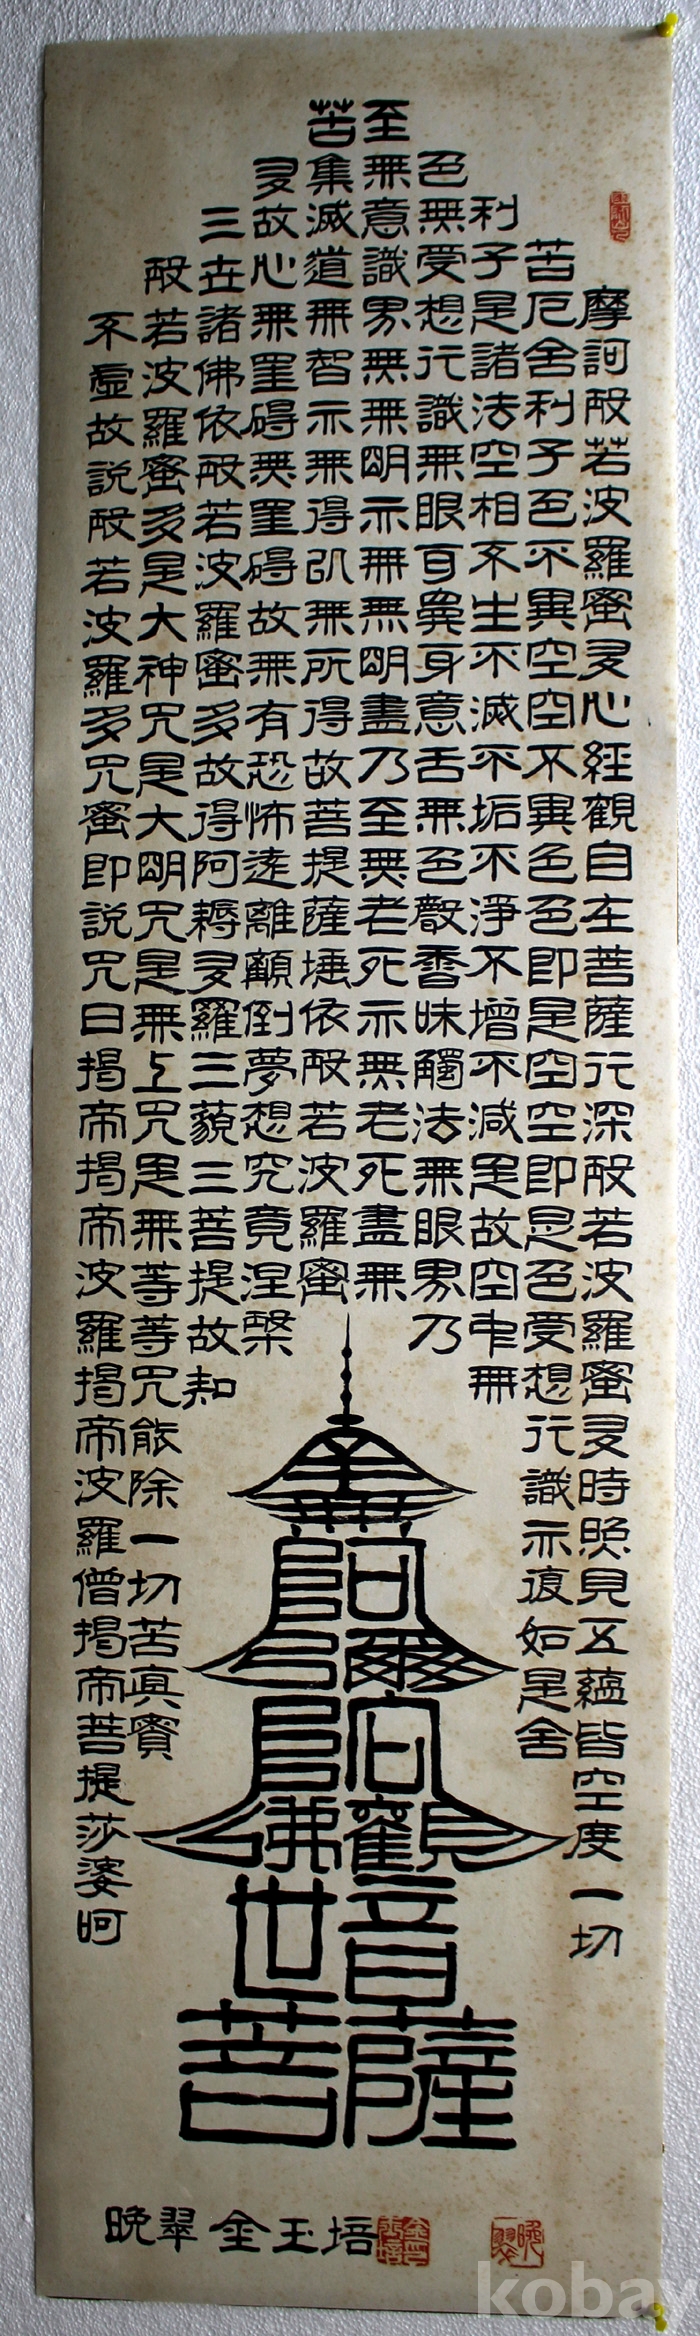 摩訶般若波羅蜜多心經觀自在菩薩行深般若波羅蜜多時照見五蘊皆空度一切
苦厄舍利子色不異空空不異色色即是空空即是色受想行識亦復如是舍
利子是諸法空相不生不滅不垢不淨不增不減是故空中無
色無受想行識無眼耳鼻身意舌無色聲香味觸法無眼界乃
至無意識界無無明亦無無明盡乃至無老死亦無老死盡無
苦集滅道無智亦無得以無所得故菩提薩埵依般若波羅蜜
多故心無罣碍無罣碍故無有恐怖遠離顚倒夢想究竟涅槃
三世諸佛依般若波羅蜜多故得阿耨多羅三藐三菩提故知
般若波羅蜜多是大神咒是大明咒是無上咒是無等等咒能除一切苦真實
不虛故說般若波羅多咒蜜即說咒曰揭帝揭帝波羅揭帝波羅僧揭帝菩提莎婆呵
觀音菩薩
佛世
晩翠 金玉培
kobay